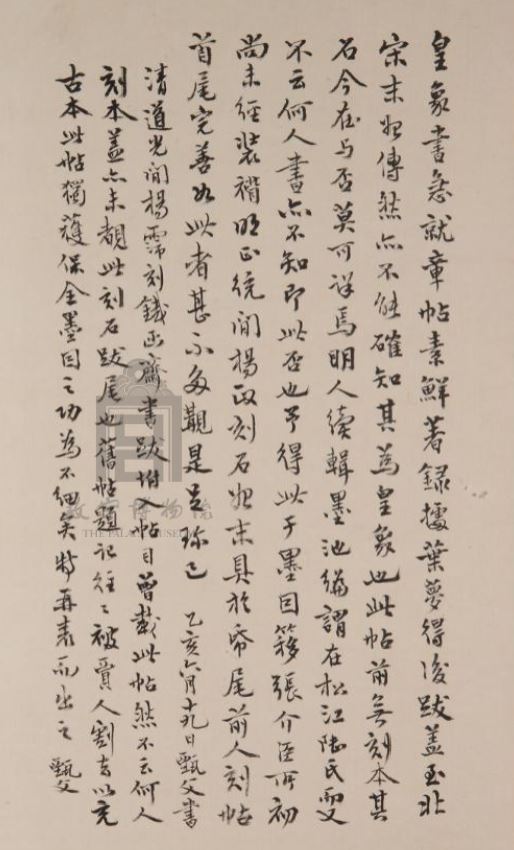 皇象書急就章帖素鮮著録據葉夢得後跋蓋至北
宋末始傳然亦不能確知其為皇象也此帖前無刻本其
石今在与否莫可详焉明人續輯墨池編謂在松江陸氏而又
不云何人書亦不知即此否也予得此于墨因簃張介臣所初
尚未經裝褙明正統間楊政刻石始末具於帋尾前人刻帖
首尾完善如此者甚不多觀是足珍已 乙亥六月十九日甄父書
清道光間楊霈刻鐵函齋書跋附入帖目曾載此帖然不云何人
刻本蓋亦未覩此刻石跋尾也舊帖題記往〻被賈人割去以充
古本此帖獨獲保全墨因之功為不細矣特再表而出之 甄父
故宫博物院
THE PALACE MUSEUM